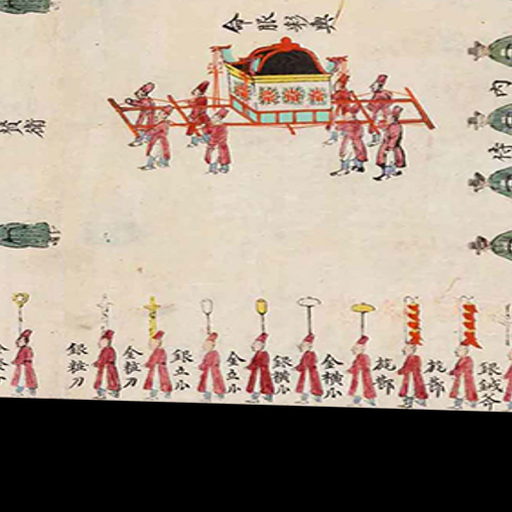 命服彩輿
內侍
銀鉞斧
旄節
旄節
金橫瓜
銀橫瓜
金立瓜
銀立瓜
金粧刀
銀粧刀